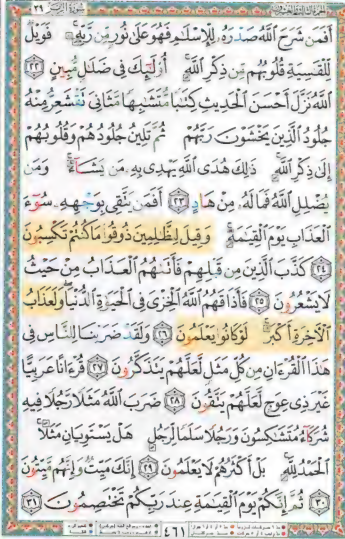 ٣٩ سورة الزمر
أَفَمَن شَرَحَ اللَّهُ صَدْرَهُ لِلْإِسْلَامِ فَهُوَ عَلَىٰ نُورٍ مِّن رَّبِّهِ فَوَيْلٌ
لِّلْقَاسِيَةِ قُلُوبُهُم مِّن ذِكْرِ اللَّهِ أُولَٰئِكَ فِي ضَلَالٍ مُّبِينٍ ٢٢
اللَّهُ نَزَّلَ أَحْسَنَ الْحَدِيثِ كِتَابًا مُّتَشَابِهًا مَّثَانِيَ تَقْشَعِرُّ مِنْهُ
جُلُودُ الَّذِينَ يَخْشَوْنَ رَبَّهُمْ ثُمَّ تَلِينُ جُلُودُهُمْ وَقُلُوبُهُمْ
إِلَىٰ ذِكْرِ اللَّهِ ذَٰلِكَ هُدَى اللَّهِ يَهْدِي بِهِ مَن يَشَاءُ وَمَن
يُضْلِلِ اللَّهُ فَمَا لَهُ مِنْ هَادٍ ٢٣ أَفَمَن يَتَّقِي بِوَجْهِهِ سُوءَ
الْعَذَابِ يَوْمَ الْقِيَامَةِ وَقِيلَ لِلظَّالِمِينَ ذُوقُوا مَا كُنتُمْ تَكْسِبُونَ
٢٤ كَذَّبَ الَّذِينَ مِن قَبْلِهِمْ فَأَتَاهُمُ الْعَذَابُ مِنْ حَيْثُ
لَا يَشْعُرُونَ ٢٥ فَأَذَاقَهُمُ اللَّهُ الْخِزْيَ فِي الْحَيَاةِ الدُّنْيَا وَلَعَذَابُ
الْآخِرَةِ أَكْبَرُ لَوْ كَانُوا يَعْلَمُونَ ٢٦ وَلَقَدْ ضَرَبْنَا لِلنَّاسِ فِي
هَٰذَا الْقُرْآنِ مِن كُلِّ مَثَلٍ لَّعَلَّهُمْ يَتَذَكَّرُونَ ٢٧ قُرْآنًا عَرَبِيًّا
غَيْرَ ذِي عِوَجٍ لَّعَلَّهُمْ يَتَّقُونَ ٢٨ ضَرَبَ اللَّهُ مَثَلًا رَّجُلًا فِيهِ
شُرَكَاءُ مُتَشَاكِسُونَ وَرَجُلًا سَلَمًا لِّرَجُلٍ هَلْ يَسْتَوِيَانِ مَثَلًا
الْحَمْدُ لِلَّهِ بَلْ أَكْثَرُهُمْ لَا يَعْلَمُونَ ٢٩ إِنَّكَ مَيِّتٌ وَإِنَّهُم مَّيِّتُونَ
٣٠ ثُمَّ إِنَّكُمْ يَوْمَ الْقِيَامَةِ عِندَ رَبِّكُمْ تَخْتَصِمُونَ ٣١
٤٦١